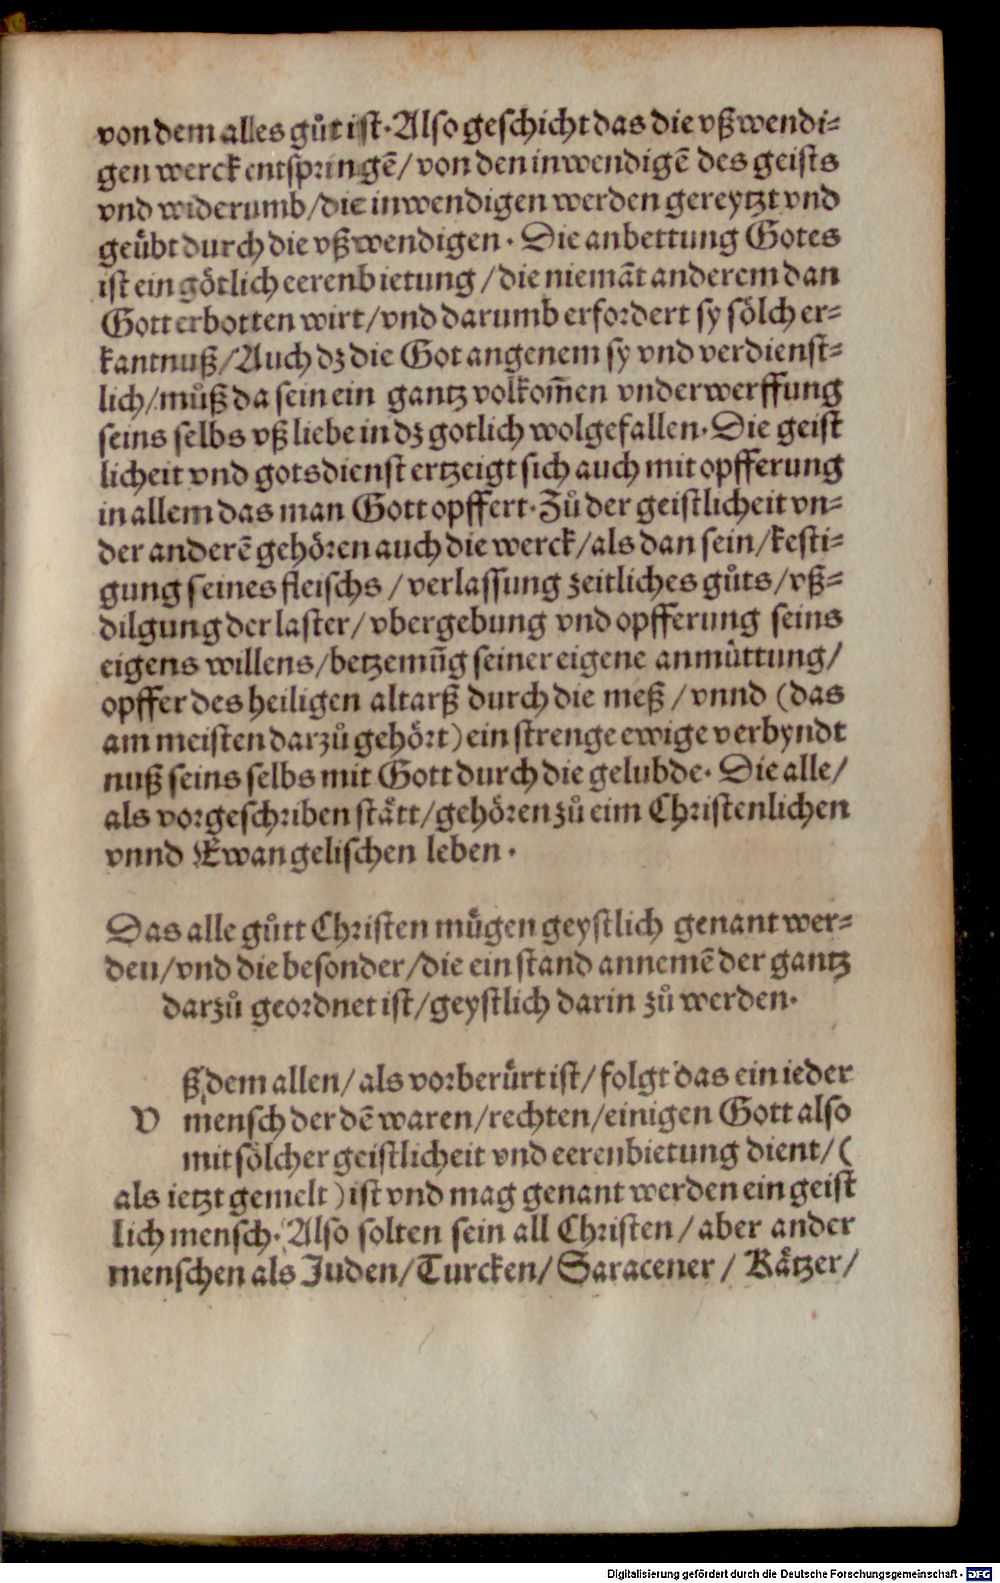 von dem alles gůt ist. Also geschicht das die vßwendi=
gen werck entspringē/ von den inwendigē des geists
vnd widerumb/die inwendigen werden gereytzt vnd
geübt durch die vßwendigen. Die anbettung Gotes
ist ein götlich eerenbietung/die niemāt anderem dan
Gott erbotten wirt/vnd darumb erfordert sy sölch er=
kantnuß/Auch dz die Got angenem sy vnd verdienst=
lich/můß da sein ein gantz volkom̄en vnderwerffung
seins selbs vß liebe in dz gotlich wolgefallen. Die geist
licheit vnd gotsdienst ertzeigt sich auch mit opfferung
in allem das man Gott opffert. Zů der geistlicheit vn=
der anderē gehören auch die werck/als dan sein/kesti=
gung seines fleischs/verlassung zeitliches gůts/vß=
dilgung der laster/vbergebung vnd opfferung seins
eigens willens/betzemūg seiner eigene anmüttung/
opffer des heiligen altarß durch die meß/vnnd (das
am meisten darzů gehört) ein strenge ewige verbyndt
nuß seins selbs mit Gott durch die gelubde. Die alle/
als vorgeschriben stått/gehören zů eim Christenlichen
vnnd Ewangelischen leben.
Das alle gůtt Christen mügen geystlich genant wer=
den/vnd die besonder/die ein stand annemē der gantz
darzů geordnet ist/geystlich darin zů werden.
ß dem allen/als vorberürt ist/folgt das ein ieder
V mensch der dē waren/rechten/einigen Gott also
mit sölcher geistlicheit vnd eerenbietung dient/(
als ietzt gemelt) ist vnd mag genant werden ein geist
lich mensch. Also solten sein all Christen/aber ander
menschen als Juden/Turcken/Saracener/Kätzer/
Digitalisierung gefördert durch die Deutsche Forschungsgemeinschaft - DFG